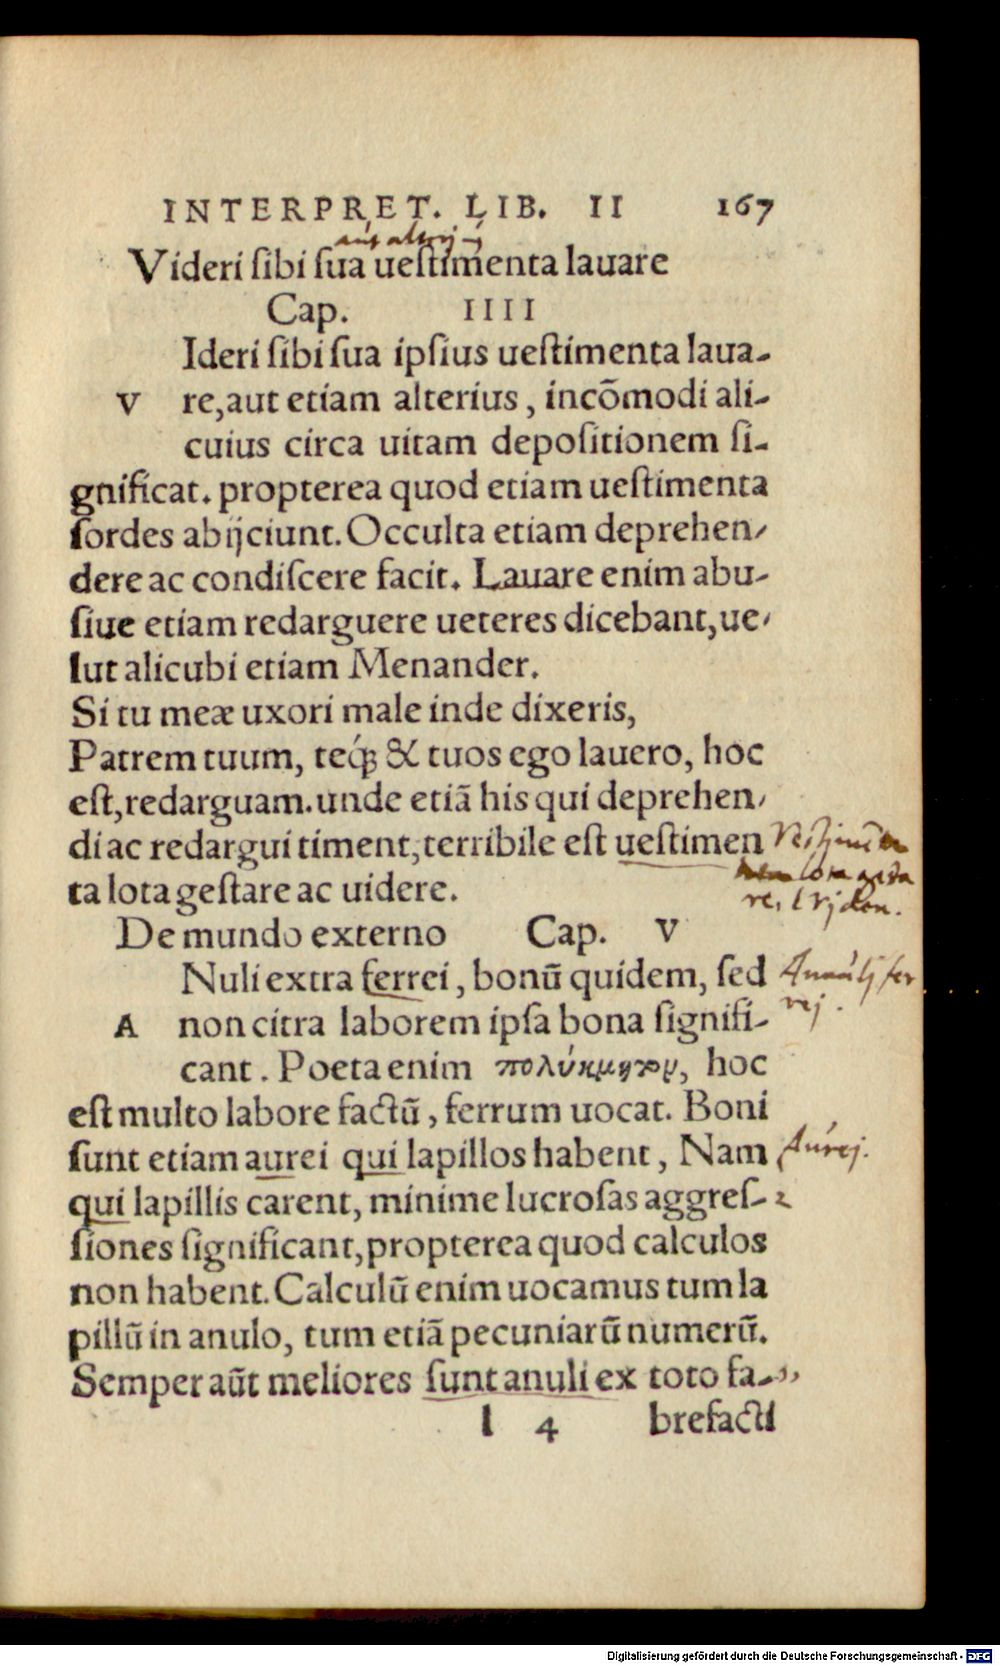 INTERPRET. LIB. II 167
Videri ſibi ſua ueſtimenta lauare
Cap. IIII
Ideri ſibi ſua ipſius ueſtimenta laua-
V re, aut etiam alterius, incōmodi ali-
cuius circa uitam depoſitionem ſi-
gnificat. propterea quod etiam ueſtimenta
ſordes abijciunt. Occulta etiam deprehen-
dere ac condiſcere facit. Lauare enim abu-
ſiue etiam redarguere ueteres dicebant, ue-
lut alicubi etiam Menander.
Si tu meæ uxori male inde dixeris,
Patrem tuum, teq́ꝫ & tuos ego lauero, hoc
eſt, redarguam. unde etiā his qui deprehen-
di ac redargui timent, terribile eſt ueſtimen
ta lota geſtare ac uidere.
lota gesta
De mundo externo Cap. V
Nuli extra ferrei, bonū quidem, ſed
Anuli fer
rej.
A non citra laborem ipſa bona ſignifi-
cant. Poeta enim πολύκμητον, hoc
eſt multo labore factū, ferrum uocat. Boni
ſunt etiam aurei qui lapillos habent, Nam
Aurej.
qui lapillis carent, minime lucroſas aggreſ-
ſiones ſignificant, propterea quod calculos
non habent. Calculū enim uocamus tum la
pillū in anulo, tum etiā pecuniarū numerū.
Semper aūt meliores ſunt anuli ex toto fa-
l 4 brefacti
Digitalisierung gefördert durch die Deutsche Forschungsgemeinschaft - DFG